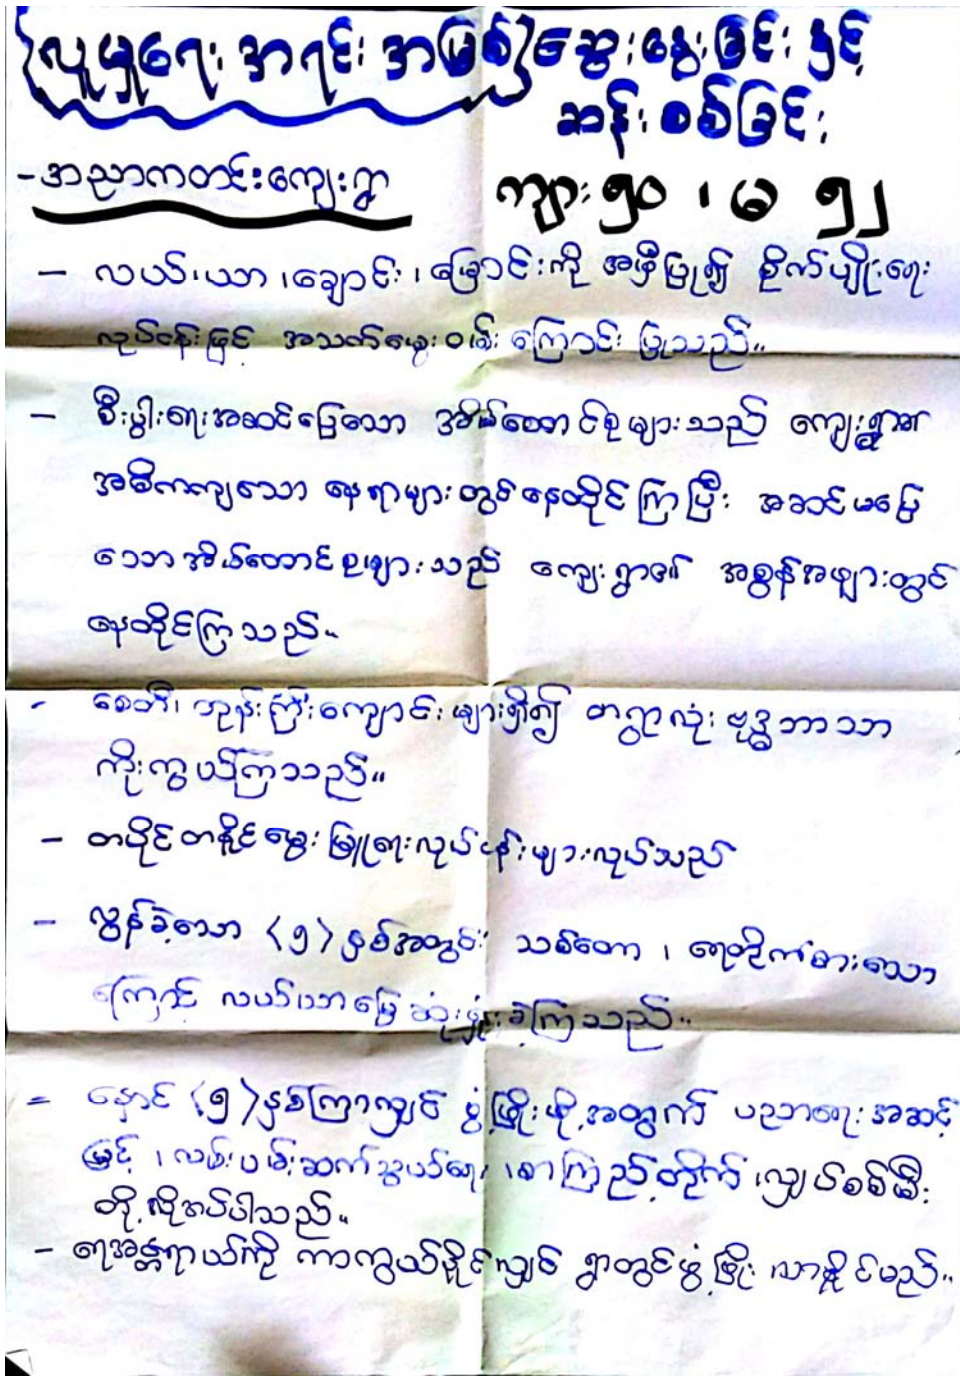 {လူမှုရေး အရင်း အမြစ်} ဆွေးနွေးခြင်း နှင့်
ဆန်းစစ်ခြင်း
- အညာကတင်းကျေးရွာ
ကျား ၅၀ ၊ မ ၅၂
- လယ်၊ယာ ၊ချောင်း ၊ မြောင်းကို အမှီပြု၍ စိုက်ပျိုးရေး
လုပ်ငန်းဖြင့် အသက်မွေးဝမ်းကြောင်း ပြုသည်။
- စီးပွါးရေးအဆင်ပြေသော အိမ်ထောင်စုများသည် ကျေးရွာ၏
အဓိကကျသော နေရာများတွင်နေထိုင်ကြပြီး အဆင်မပြေ
သောအိမ်ထောင်စုများသည် ကျေးရွာ၏ အစွန်အဖျားတွင်
နေထိုင်ကြသည်။
- စေတီ၊ ဘုန်းကြီးကျောင်းများရှိ၍ တရွာလုံး ဗုဒ္ဓဘာသာ
ကိုးကွယ်ကြသည်။
- တပိုင်တနိုင်မွေးမြူရေးလုပ်ငန်းများလုပ်သည်
- လွန်ခဲ့သော (၅) နှစ်အတွင်း သစ်တော ၊ ရေတိုက်စားသော
ကြောင့် လယ်ယာမြေဆုံးရှုံးခဲ့ကြသည်။
- နောင် (၅) နှစ်ကြာလျှင် ဖွံ့ဖြိုးဖို့အတွက် ပညာရေးအဆင့်
မြင့် ၊ လမ်းပမ်းဆက်သွယ်ရေး ၊စာကြည့်တိုက် ၊လျှပ်စစ်မီး
တို့လိုအပ်ပါသည်။
- ရေအန္တရာယ်ကို ကာကွယ်နိုင်လျှင် ရွာတွင်ဖွံ့ဖြိုးလာနိုင်မည်။